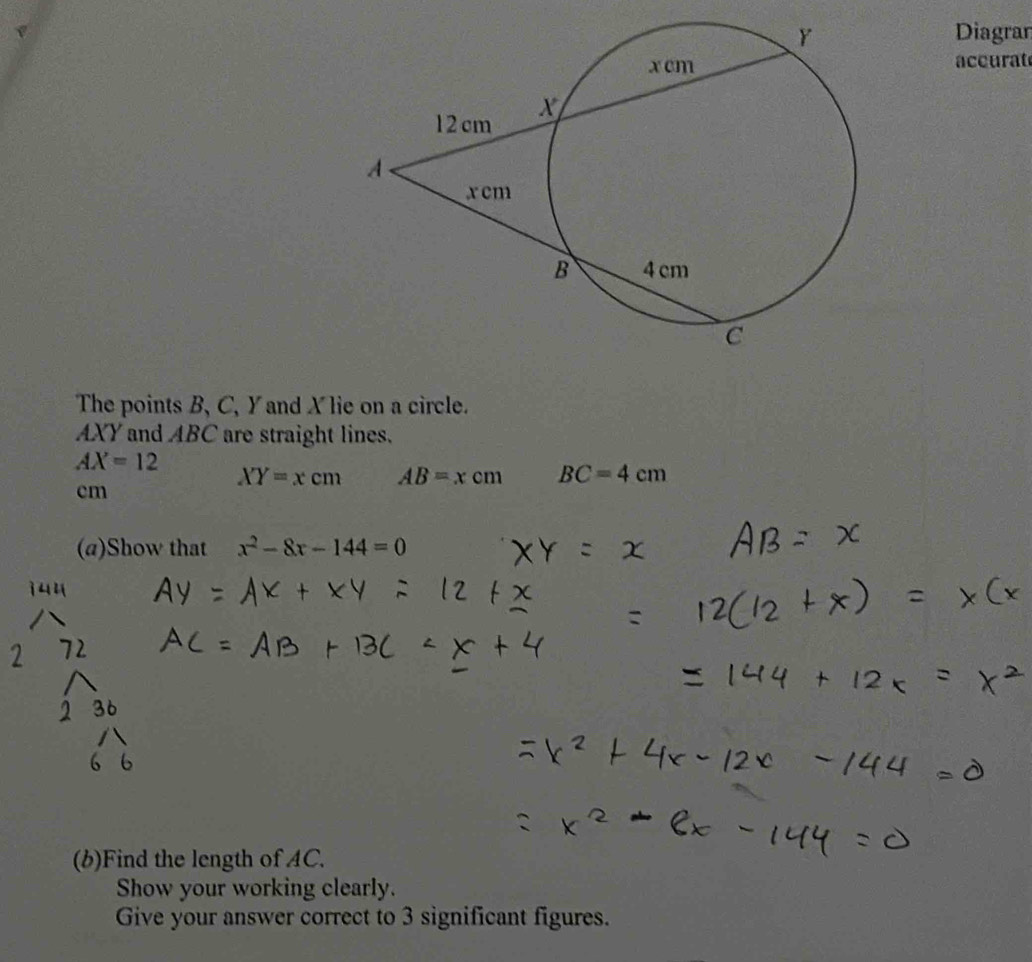 Y
Diagram
accurate
x cm
X
12 cm
A
x cm
B
4 cm
C
The points B, C, Y and X lie on a circle.
AXY and ABC are straight lines.
AX = 12
cm
XY = x cm
AB = x cm
BC = 4 cm
(a)Show that x² – 8x – 144 = 0
XY = x
AB = x
144
2 72
2 36
6 6
AY = AX + XY = 12 + x
AC = AB + BC = x + 4
= 12(12 + x) = x(x
= 144 + 12x = x²
= x² + 4x - 12x - 144 = 0
= x² - 8x - 144 = 0
(b)Find the length of AC.
Show your working clearly.
Give your answer correct to 3 significant figures.